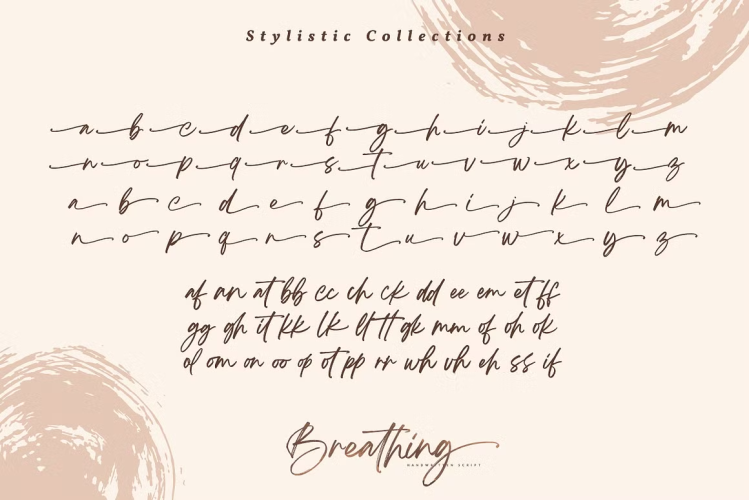 Stylistic Collections
a b c d e f g h i j k l m
n o p q r s t u v w x y z
a b c d e f g h i j k l m
n o p q r s t u v w x y z
af an at bb cc ch ck dd ee em et ff
gg gh it kk lk lt tt gk mm of oh ok
ol om on oo op ot pp rr wh vh eh ss if
Breathing
HANDWRITTEN SCRIPT